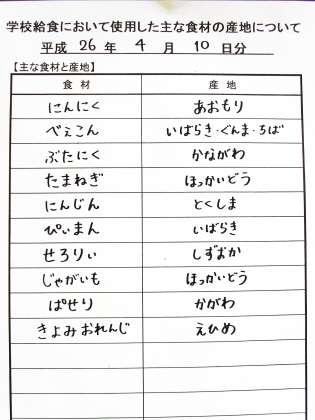 学校給食において使用した主な食材の産地について
平成 26 年 4 月 10 日分
【主な食材と産地】
食材 産地
にんにく あおもり
べえこん いばらき・ぐんま・ちば
ぶたにく かながわ
たまねぎ ほっかいどう
にんじん とくしま
ぴいまん いばらき
せろりい しずおか
じゃがいも ほっかいどう
ぱせり かがわ
きよみおれんじ えひめ